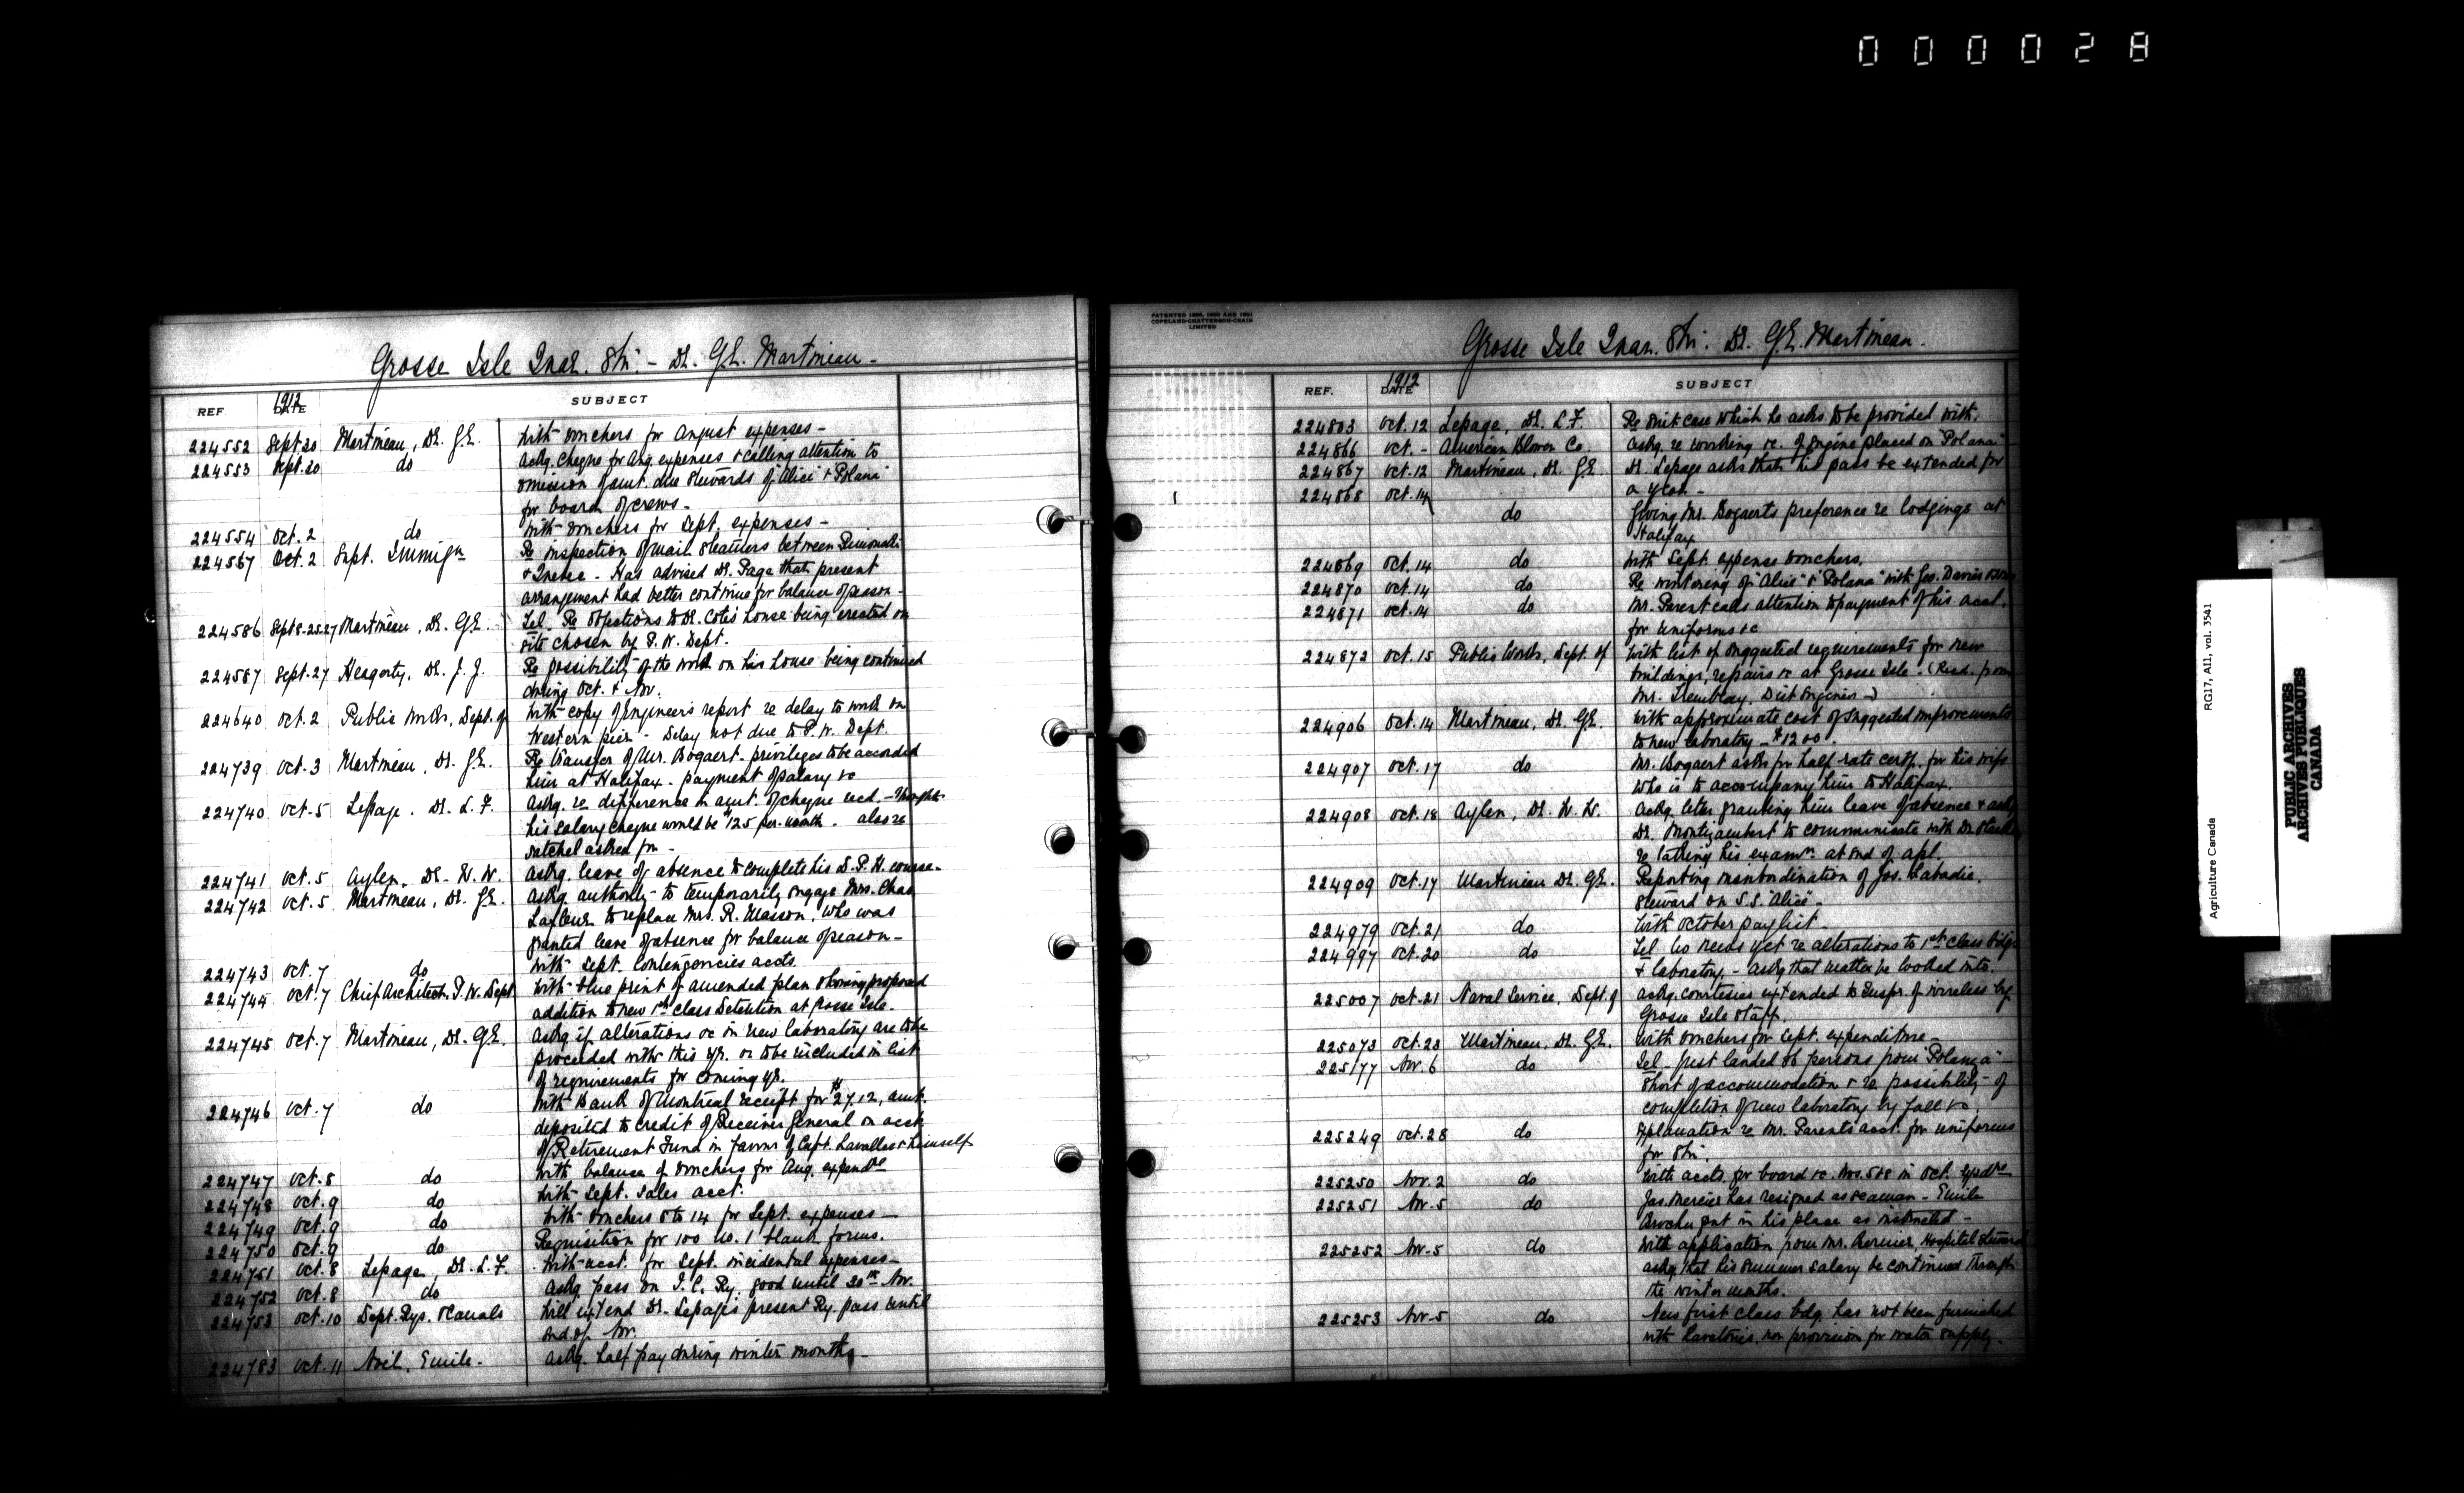 000028
Grosse Isle Quar. Stn. - Dr. G.E. Martineau -
REF. 1912 DATE SUBJECT
224552 Sept 20 Martineau, Dr. G.E. With vouchers for August expenses -
224553 Sept. 20 do Ackg. cheque for Aug. expenses & calling attention to
omission of amt. due Stewards of "Alice" & "Polana"
for board of crews -
224554 Oct. 2 do With vouchers for Sept. expenses -
224567 Oct. 2 Supt. Immign Re inspection of mail steamers between Rimouski
& Quebec - Has advised Dr. Page that present
arrangement had better continue for balance of season -
224586 Sept 8-25-27 Martineau, Dr. G.E. Tel. Re objections to Dr. Cote's house being erected on
site chosen by P. W. Dept.
224587 Sept. 27 Heagerty, Dr. J. J. Re possibility of the work on his house being continued
during Oct. & Nov.
224640 Oct. 2 Public Works, Dept. of With copy of Engineer's report re delay to work on
Western pier - Delay not due to P. W. Dept.
224739 Oct. 3 Martineau, Dr. G.E. Re transfer of Mr. Bogaert - privileges to be accorded
him at Halifax - payment of salary &c
224740 Oct. 5 Lepage, Dr. L. F. Ackg. re difference in amt. of cheque recd. - Thought
his salary cheque would be $125 per month. also re
satchel asked for -
224741 Oct. 5 Aylen, Dr. W. W. Askg. leave of absence to complete his D.P.H. course -
224742 Oct. 5 Martineau, Dr. G.E. Askg. authority to temporarily engage Mrs. Chas.
Lafleur to replace Mrs. R. Masson, who was
granted leave of absence for balance of season -
224743 Oct. 7 do With Sept. Contingencies accts.
224744 Oct. 7 Chief Architect, P. W. Dept With blue print of amended plan showing proposed
addition to new 1st Class Detention at Grosse Isle.
224745 Oct. 7 Martineau, Dr. G.E. Askg. if alterations &c in new laboratory are to be
proceeded with this yr. or to be included in list
of requirements for coming yr.
224746 Oct. 7 do With Bank of Montreal receipt for $27.12, amt.
deposited to credit of Receiver General on acct
of Retirement Fund in favour of Capt. Lavallee & himself
224747 Oct. 8 do With balance of vouchers for Aug. expendre
224748 Oct. 9 do With Sept. sales acct.
224749 Oct. 9 do With vouchers 8 to 14 for Sept. expenses -
224750 Oct. 9 do Requisition for 100 No. 1 blank forms.
224751 Oct. 8 Lepage, Dr. L. F. With acct. for Sept. incidental expenses -
224752 Oct. 8 do Askg. pass on I. C. Ry. good until 30th Nov.
224753 Oct. 10 Dept. Rys. & Canals Will extend Dr. Lepage's present Ry. pass until
end of Nov.
224783 Oct. 11 Noel, Emile - Askg. half pay during winter months -
PATENTED 1898, 1900 AND 1901
COPELAND-CHATTERSON-CRAIN
LIMITED
Grosse Isle Quar. Stn. Dr. G.E. Martineau.
REF. 1912 DATE SUBJECT
224803 Oct. 12 Lepage, Dr. L.F. Re suit case which he asks to be provided with.
224866 Oct. - American Blower Co Askg. re working &c. of engine placed on "Polana"
224867 Oct. 12 Martineau, Dr. G.E Dr. Lepage asks that his pass be extended for
a year -
224868 Oct. 14 do Giving Mr. Bogaerts preference re lodgings at
Halifax
224869 Oct. 14 do With Sept. expense vouchers.
224870 Oct. 14 do Re wintering of "Alice" & "Polana" with Geo. Davie & Sons
224871 Oct. 14 do Mr. Parent calls attention to payment of his acct.
for uniforms &c
224872 Oct. 15 Public Works, Dept. of With list of suggested requirements for new
buildings, repairs &c at Grosse Isle - (Recd. from
Mr. Tremblay, Dist Engineer -)
224906 Oct. 14 Martineau, Dr. G.E. With approximate cost of suggested improvements
to new laboratory - $1200.
224907 Oct. 17 do Mr. Bogaert asks for half-rate certf. for his wife
who is to accompany him to Halifax.
224908 Oct. 18 Aylen, Dr. W. W. Ackg. letter granting him leave of absence & askg
Dr. Montizambert to communicate with Dr.
re taking his examn. at end of Apl.
224909 Oct. 17 Martineau Dr. G.E. Reporting insubordination of Jos. Labadie,
Steward on S.S. "Alice" -
224979 Oct. 21 do With October pay list -
224997 Oct. 20 do Tel - No news yet re alterations to 1st class bldg.
& laboratory - Askg that matter be looked into.
225007 Oct. 21 Naval Service, Dept. of Ackg. courtesies extended to Inspr. of wireless by
Grosse Isle Staff.
225073 Oct. 23 Martineau, Dr. G.E. With vouchers for Sept. expenditure -
225177 Nov. 6 do Tel - Just landed 86 persons from "Polana" -
Short of accommodation & re possibility of
completion of new laboratory by fall &c.
225249 Oct. 28 do Explanation re Mr. Parent's acct. for uniforms
for Stn.
225250 Nov. 2 do With accts. for board &c. Nos. 5 & 8 in Oct. expdre -
225251 Nov. 5 do Jas. Mercier has resigned as seaman - Emile
Brochu put in his place as instructed -
225252 Nov. 5 do With application from Mr. Bernier, Hospital Steward
askg. that his summer salary be continued through
the winter months.
225253 Nov. 5 do New first class bldg. has not been furnished
with lavatories, nor provision for water supply.
RG17, AII, vol. 3541
Agriculture Canada
PUBLIC ARCHIVES
ARCHIVES PUBLIQUES
CANADA